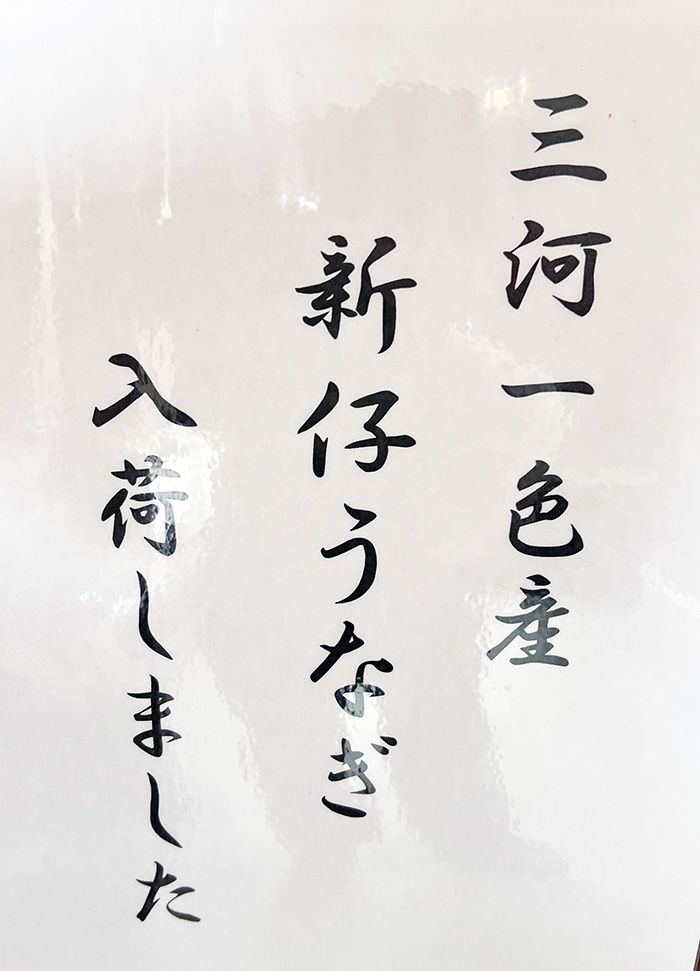 三河一色産
新仔うなぎ
入荷しました